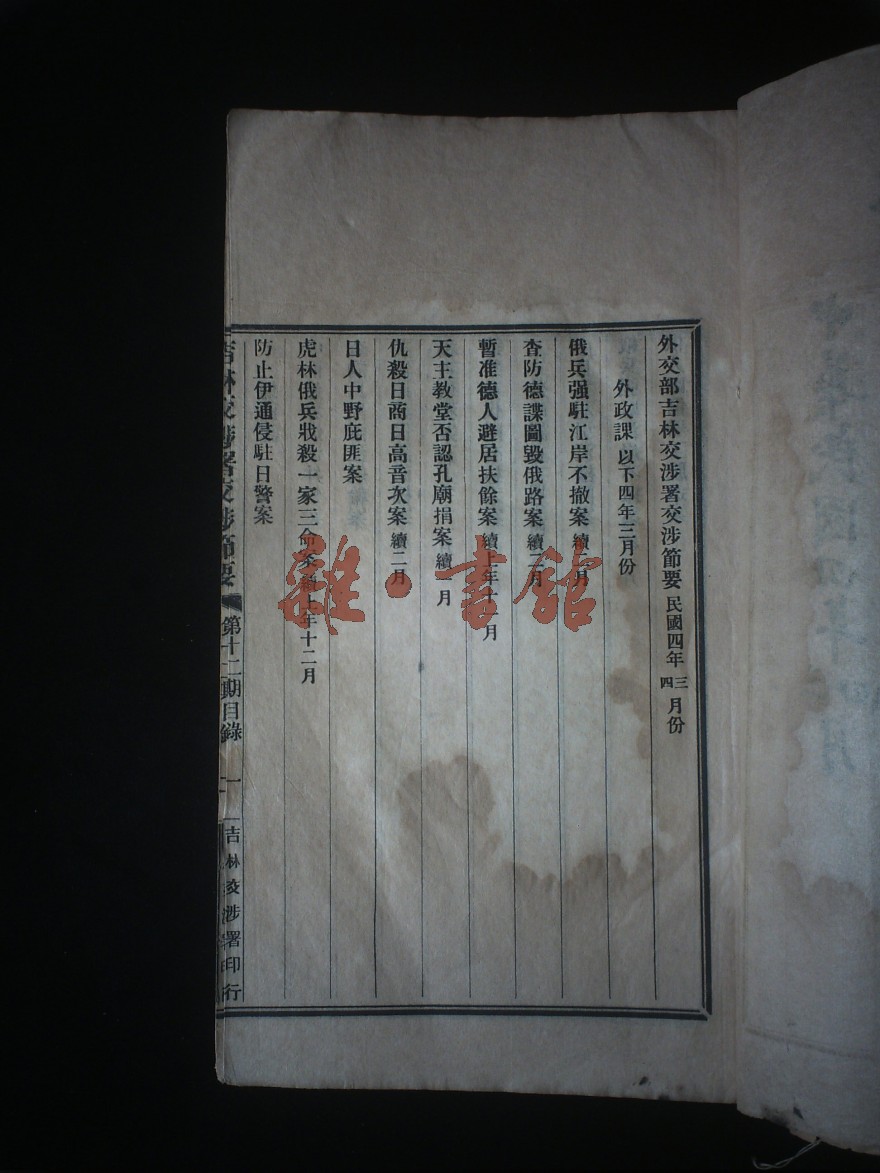 外交部吉林交涉署交涉節要 民國四年 三四 月份
外政課 以下四年三月份
俄兵强駐江岸不撤案 續二月
查防德諜圖毀俄路案 續二月
暫准德人避居扶餘案 續上年十月
天主教堂否認孔廟捐案 續一月
仇殺日商日高音次案 續二月
日人中野庇匪案
虎林俄兵戕殺一家三命案 續上年十二月
防止伊通侵駐日警案
吉林交涉署交涉節要 第十二期目錄 一 吉林交涉署印行
雜·書館